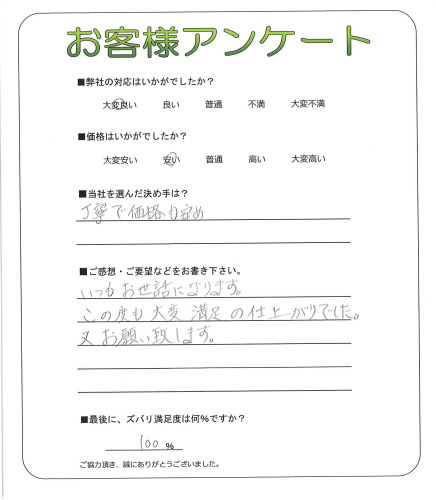 お客様アンケート
■弊社の対応はいかがでしたか？
大変良い 良い 普通 不満 大変不満
■価格はいかがでしたか？
大変安い 安い 普通 高い 大変高い
■当社を選んだ決め手は？
丁寧で価格も安め
■ご感想・ご要望などをお書き下さい。
いつもお世話になります。
この度も大変満足の仕上がりでした。
又お願い致します。
■最後に、ズバリ満足度は何％ですか？
100 %
ご協力頂き、誠にありがとうございました。